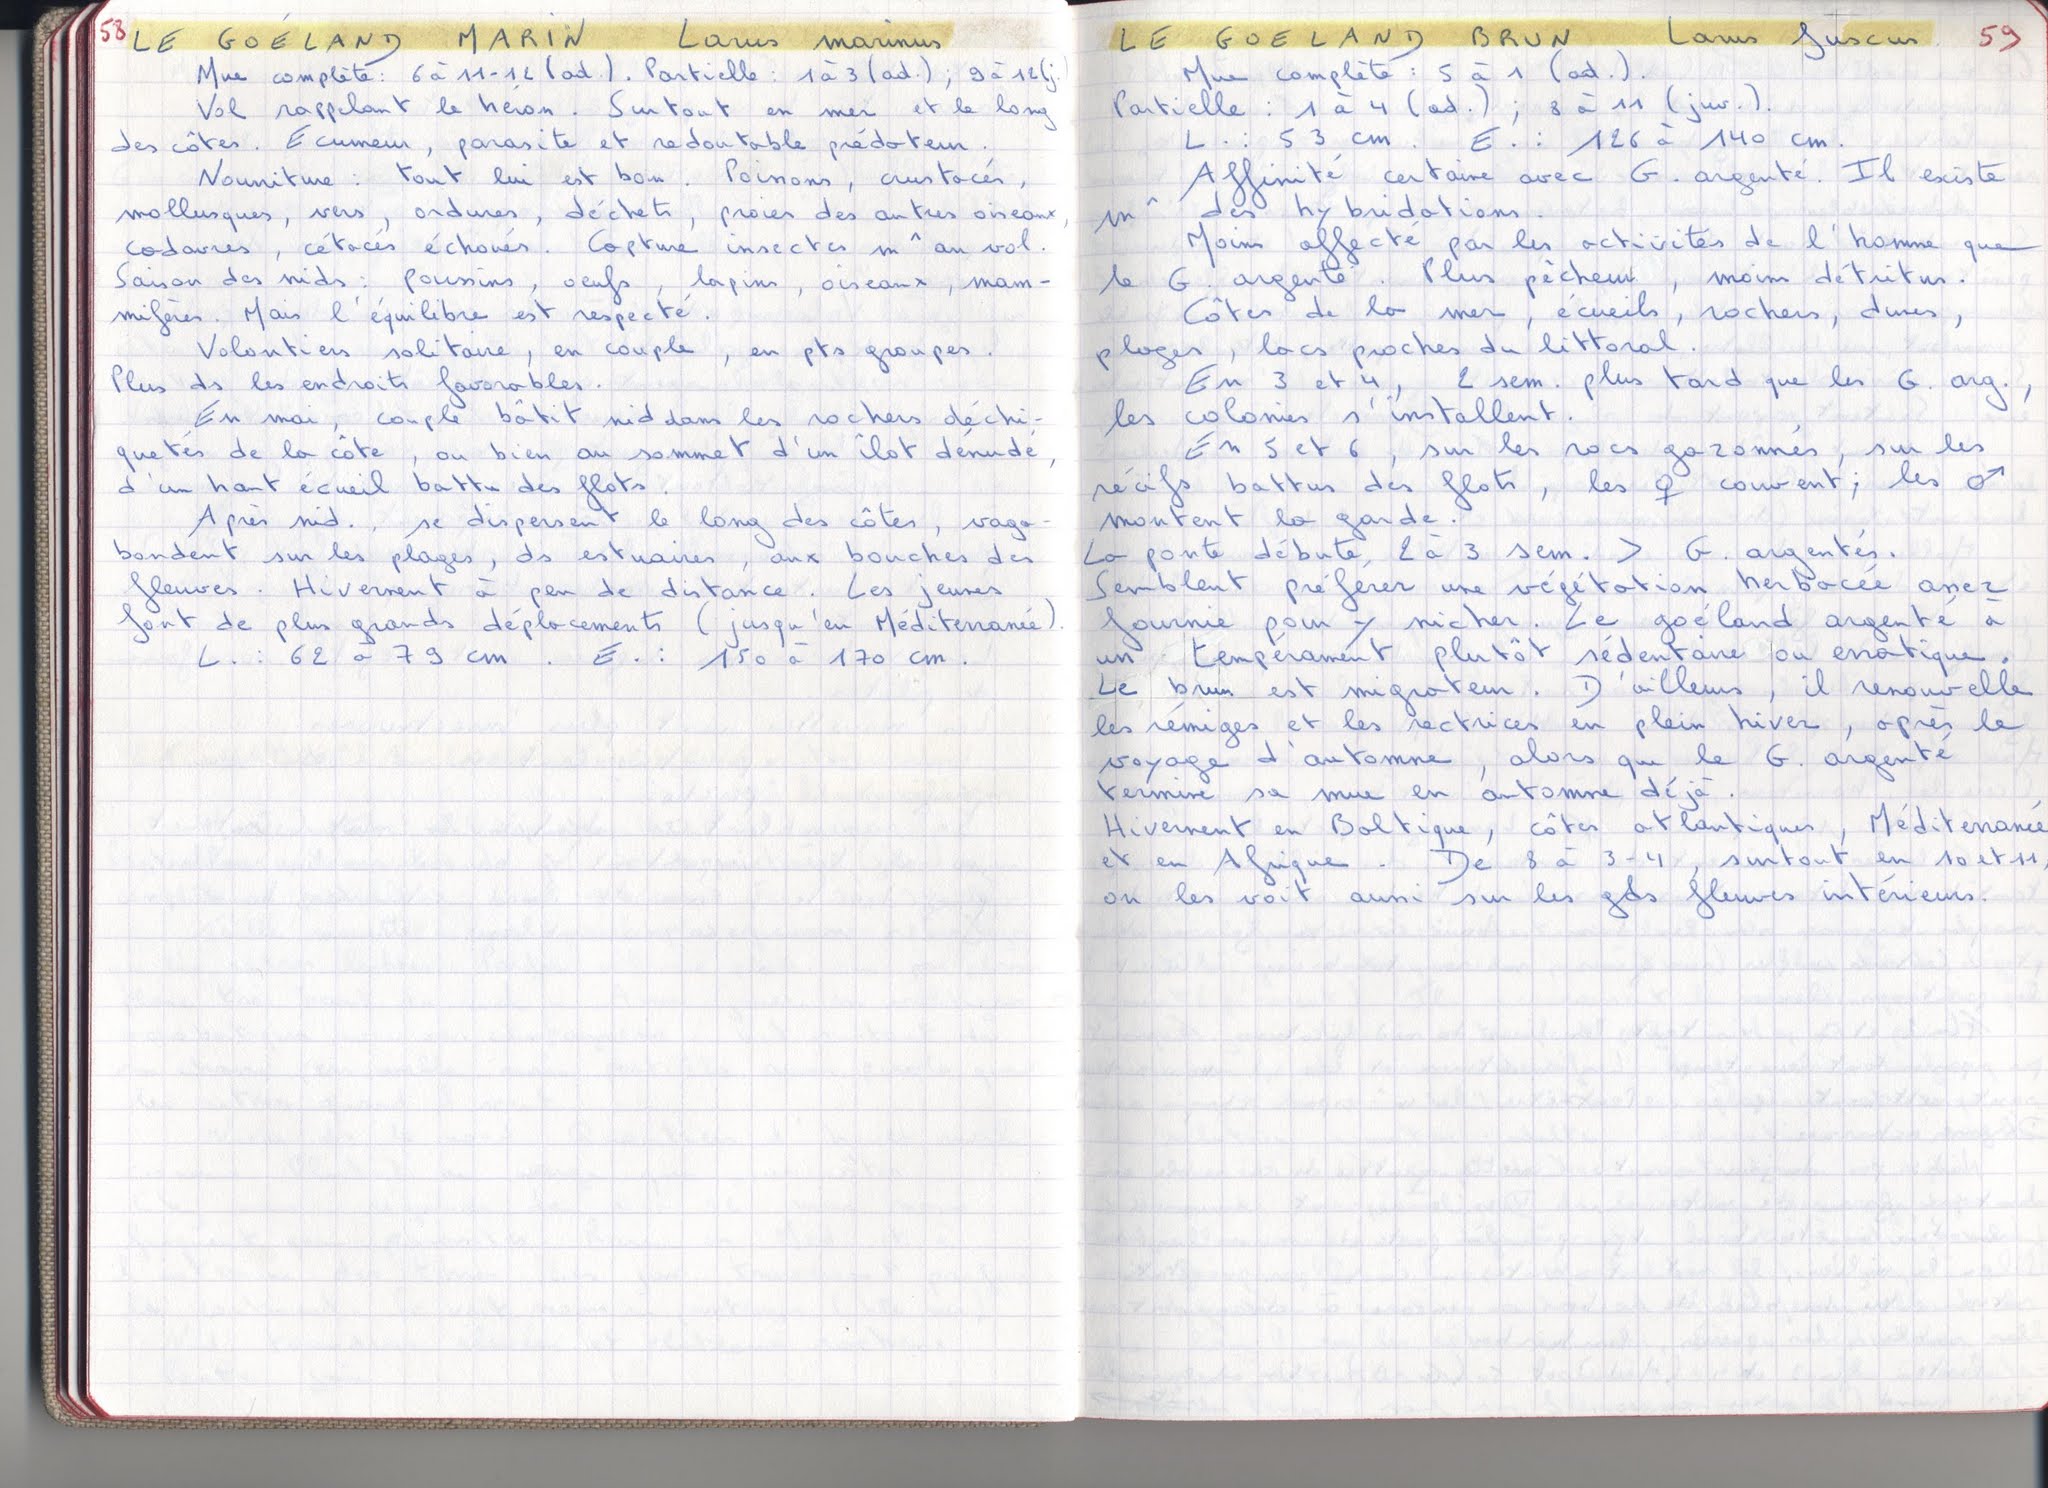 58 LE GOÉLAND MARIN Larus marinus
Mue complète : 6 à 11-12 (ad.). Partielle : 1 à 3 (ad.) ; 9 à 12 (j.)
Vol rappelant le héron. Surtout en mer et le long
des côtes. Ecumeur, parasite et redoutable prédateur.
Nourriture : tout lui est bon. Poissons, crustacés,
mollusques, vers, ordures, déchets, proies des autres oiseaux,
cadavres, cétacés échoués. Capture insectes m^ au vol.
Saison des nids : poussins, oeufs, lapins, oiseaux, mam-
mifères. Mais l'équilibre est respecté.
Volontiers solitaire, en couple, en pts groupes.
Plus ds les endroits favorables.
En mai, couple bâtit nid dans les rochers déchi-
quetés de la côte, ou bien au sommet d'un îlot dénudé,
d'un haut écueil battu des flots.
Après nid., se dispersent le long des côtes, vaga-
bondent sur les plages, ds estuaires, aux bouches des
fleuves. Hivernent à peu de distance. Les jeunes
font de plus grands déplacements (jusqu'en Méditerranée).
L. : 62 à 79 cm. E. : 150 à 170 cm.
LE GOELAND BRUN Larus fuscus. 59
Mue complète : 5 à 1 (ad.).
Partielle : 1 à 4 (ad.) ; 8 à 11 (juv.).
L. : 53 cm. E. : 126 à 140 cm.
Affinité certaine avec G. argenté. Il existe
m^ des hybridations.
Moins affecté par les activités de l'homme que
le G. argenté. Plus pêcheur, moins détritus.
Côtes de la mer, écueils, rochers, dunes,
plages, lacs proches du littoral.
En 3 et 4, 2 sem. plus tard que les G. arg.,
les colonies s'installent.
En 5 et 6, sur les rocs gazonnés, sur les
récifs battus des flots, les ♀ couvent ; les ♂
montent la garde.
La ponte débute 2 à 3 sem. > G. argentés.
Semblent préférer une végétation herbacée assez
fournie pour y nicher. Le goéland argenté à
un tempérament plutôt sédentaire ou erratique.
Le brun est migrateur. D'ailleurs, il renouvelle
les rémiges et les rectrices en plein hiver, après le
voyage d'automne, alors que le G. argenté
termine sa mue en automne déjà.
Hivernent en Baltique, côtes atlantiques, Méditerranée
et en Afrique. De 8 à 3-4, surtout en 10 et 11,
on les voit aussi sur les gds fleuves intérieurs.